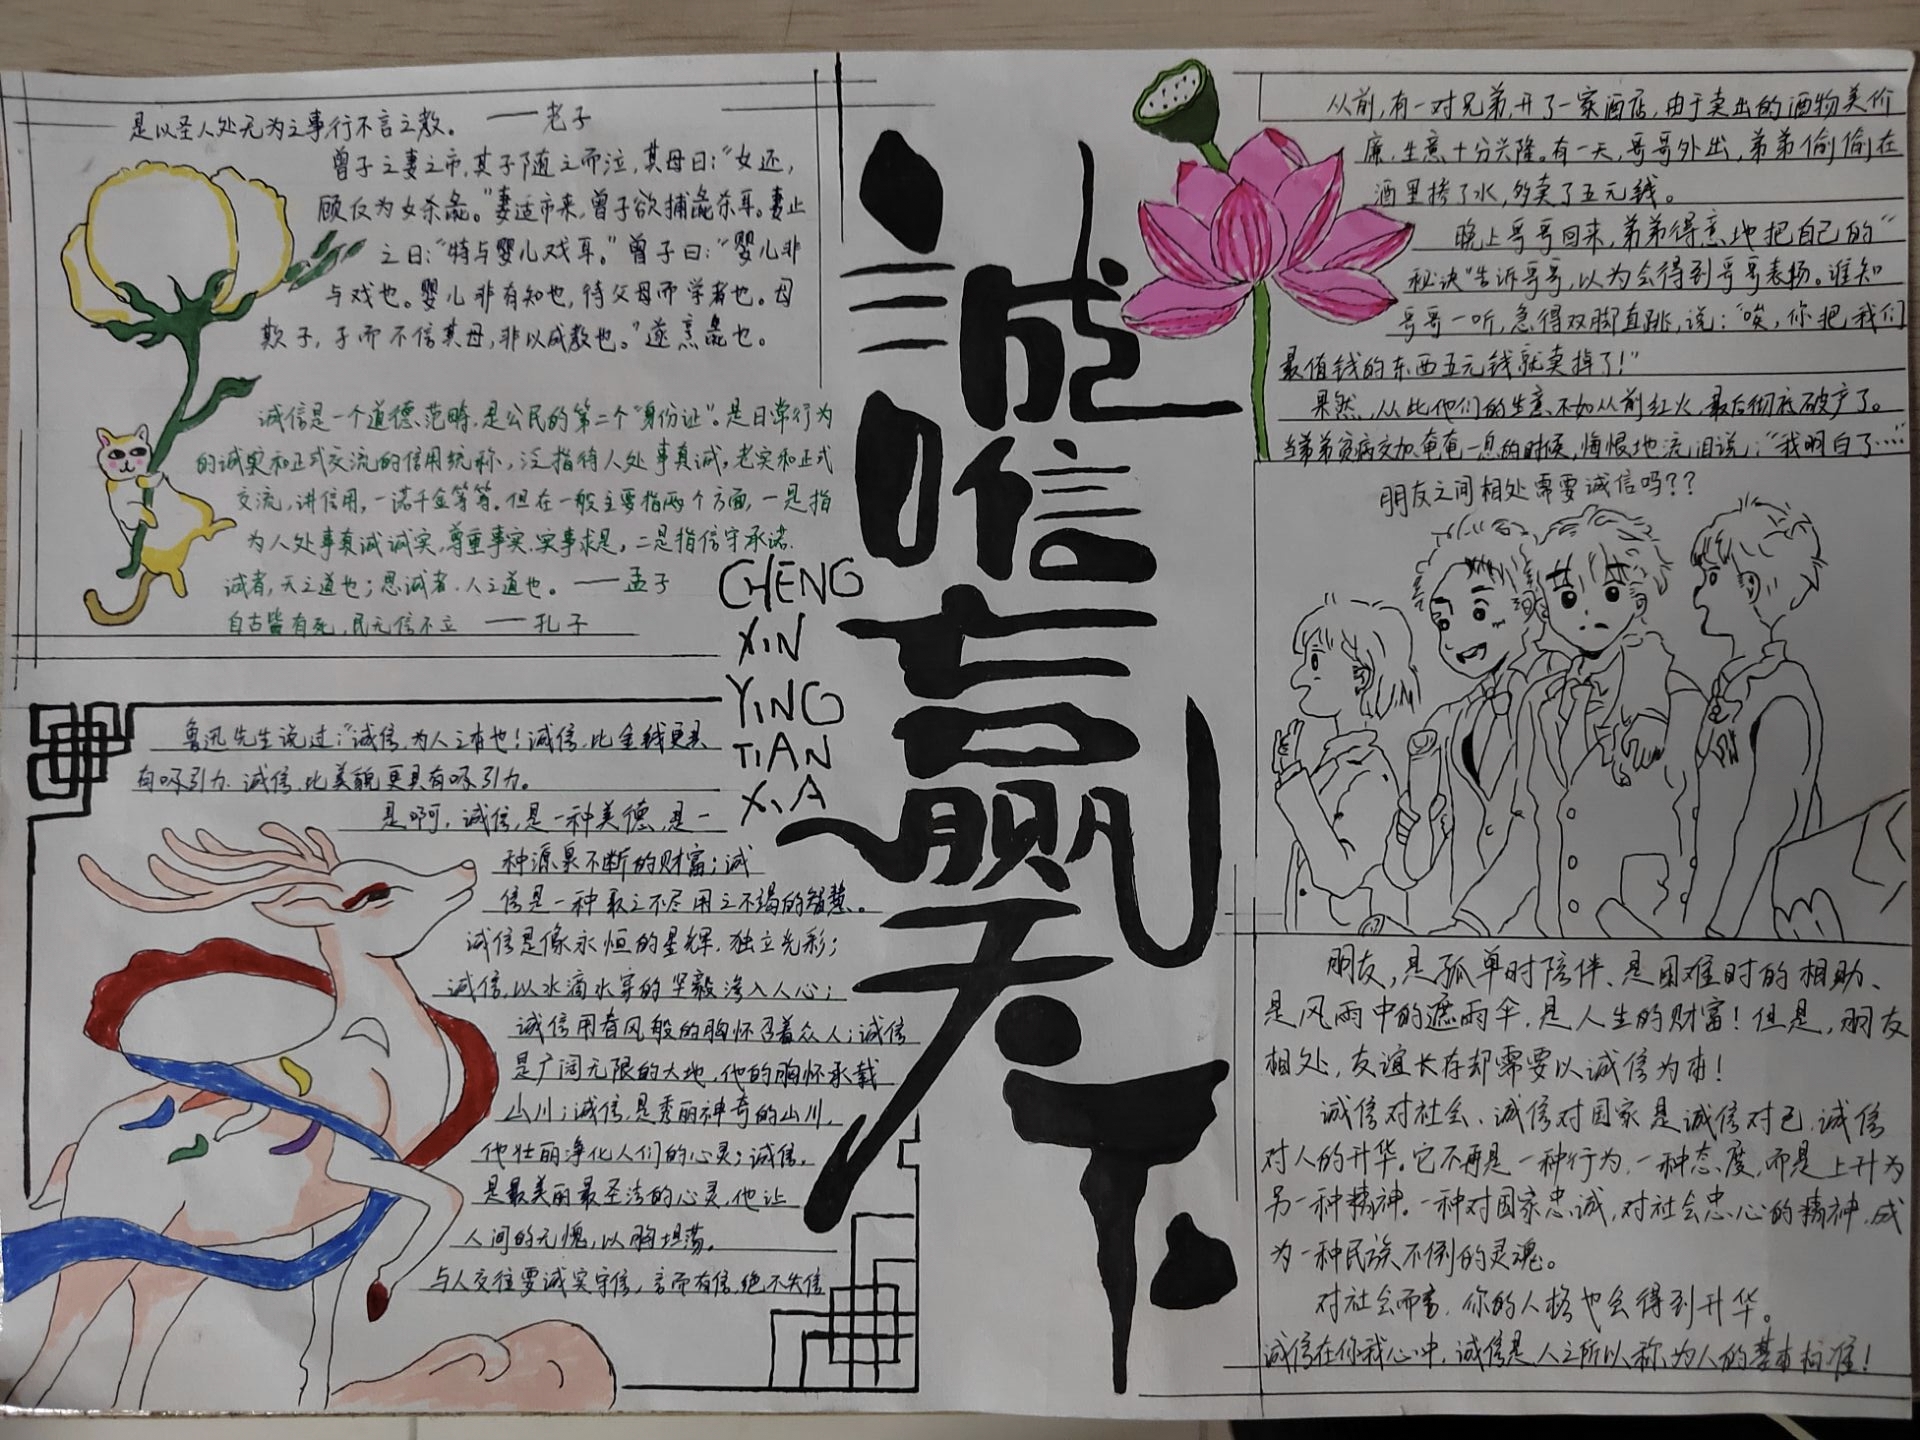 是以圣人处无为之事行不言之教。——老子
曾子之妻之市,其子随之而泣,其母曰:“女还,
顾反为女杀彘。”妻适市来,曾子欲捕彘杀耳。妻止
之曰:“特与婴儿戏耳。”曾子曰:“婴儿非
与戏也。婴儿非有知也,待父母而学者也。母
欺子,子而不信其母,非以成教也。”遂烹彘也。
诚信是一个道德范畴,是公民的第二个“身份证”。是日常行为
的诚实和正式交流的信用统称,泛指待人处事真诚,老实和正式
交流,讲信用,一诺千金等等。但在一般主要指两个方面,一是指
为人处事真诚诚实,尊重事实,实事求是,二是指信守承诺.
诚者,天之道也;思诚者,人之道也。——孟子
自古皆有死,民无信不立 ——孔子
鲁迅先生说过:“诚信,为人之本也!诚信,比金钱更具
有吸引力.诚信,比美貌更具有吸引力。
是啊,诚信,是一种美德,是一
种源泉不断的财富;诚
信是一种取之不尽用之不竭的智慧。
诚信是像永恒的星辉,独立光彩;
诚信,以水滴水穿的坚毅渗入人心;
诚信用春风般的胸怀召着众人;诚信
是广阔无限的大地,他的胸怀承载
山川;诚信,是秀丽神奇的山川,
他壮丽净化人们的心灵;诚信,
是最美丽最圣洁的心灵,他让
人间的无愧,以胸坦荡。
与人交往要诚实守信,言而有信,绝不失信
CHENG
XIN
YING
TIAN
XIA
诚
信
赢
天
下
从前,有一对兄弟,开了一家酒店,由于卖出的酒物美价
廉,生意十分兴隆。有一天,哥哥外出,弟弟偷偷在
酒里掺了水,多卖了五元钱。
晚上哥哥回来,弟弟得意地把自己的“
秘诀”告诉哥哥,以为会得到哥哥表扬。谁知
哥哥一听,急得双脚直跳,说:“唉,你把我们
最值钱的东西五元钱就卖掉了!”
果然,从此他们的生意不如从前红火,最后彻底破产了。
当弟弟贫病交加奄奄一息的时候,悔恨地流泪说:“我明白了……
朋友之间相处需要诚信吗??
朋友,是孤单时陪伴、是困难时的相助、
是风雨中的遮雨伞,是人生的财富!但是,朋友
相处,友谊长存却需要以诚信为本!
诚信对社会、诚信对国家是诚信对己,诚信
对人的升华。它不再是一种行为,一种态度,而是上升为
另一种精神。一种对国家忠诚,对社会忠心的精神,成
为一种民族不倒的灵魂。
对社会而言,你的人格也会得到升华。
诚信在你我心中,诚信是人之所以称为人的基本标准!